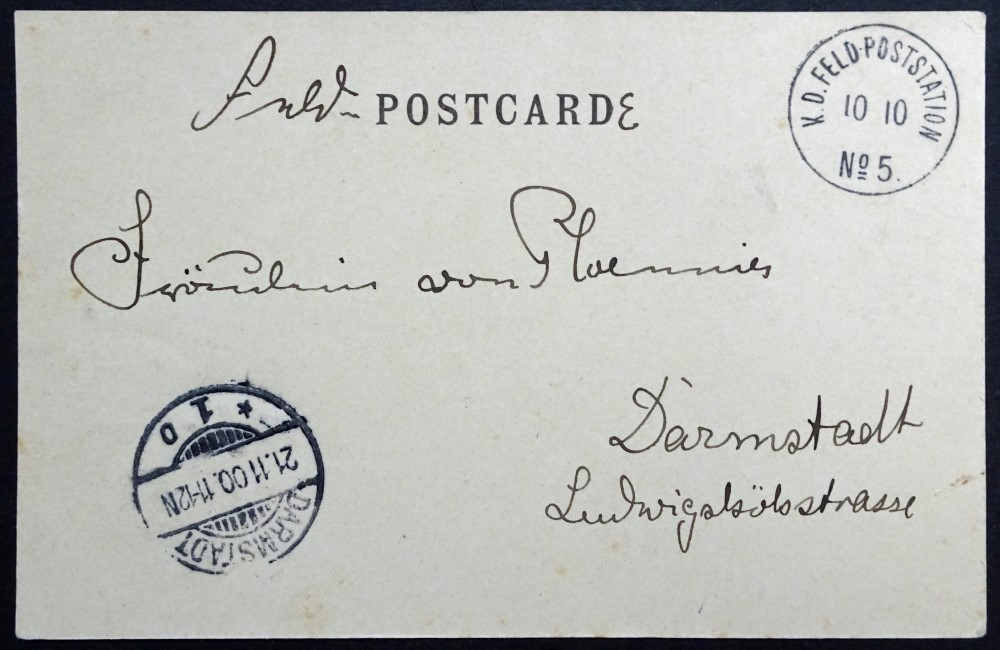 Feld- POSTCARDE
K.D. FELD-POSTSTATION
10 10
Nº 5.
Fräulein von Ploennies
Darmstadt
Ludwigshöhstrasse
* 1 D
21.11.00. 11-12N
DARMSTADT